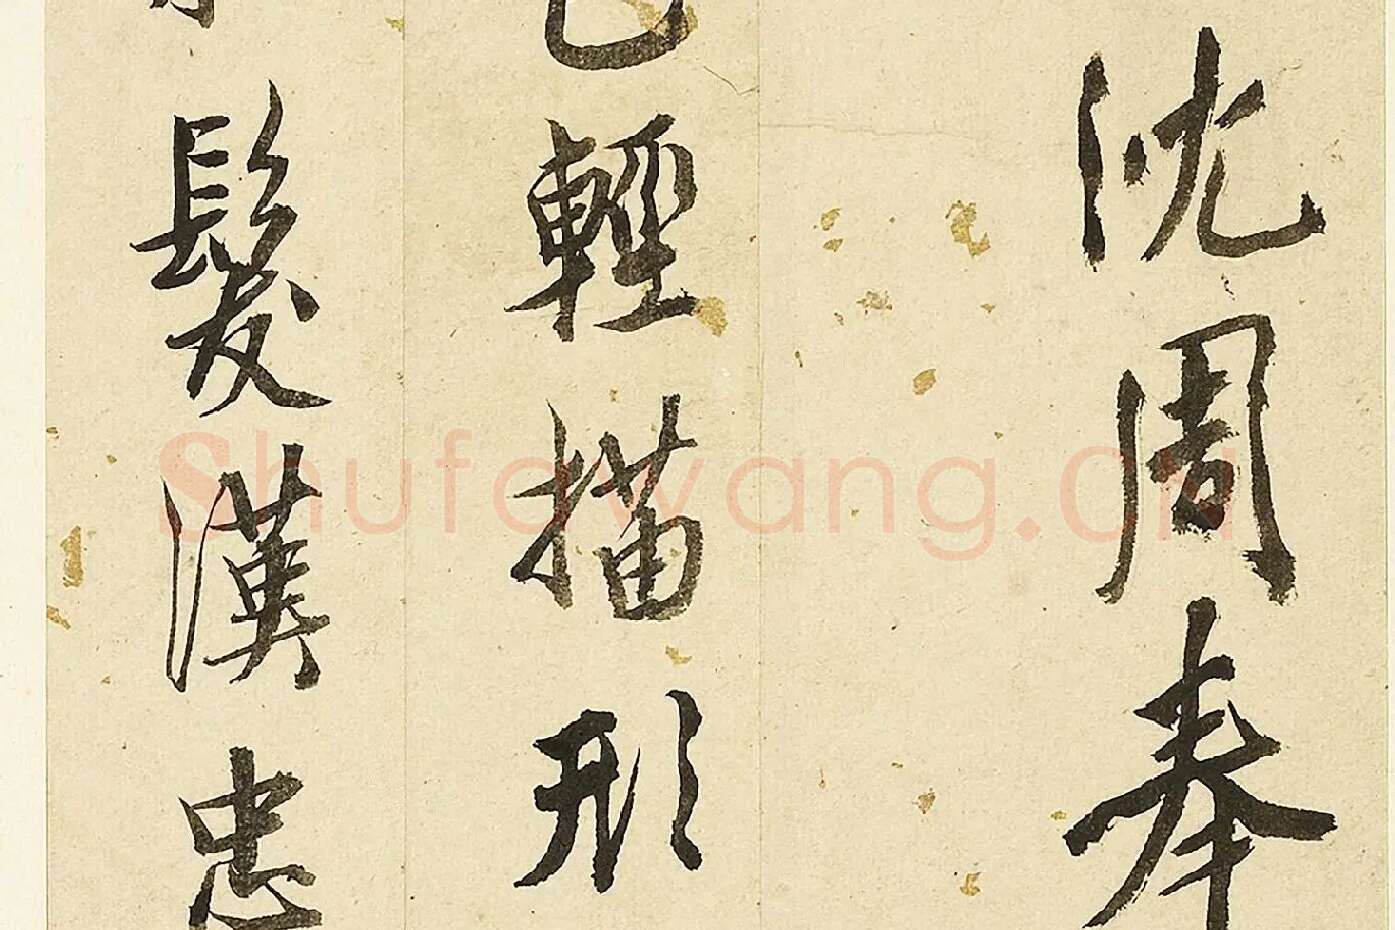 沈周奉
輕描形
髮漢忠
Shufawang.CN